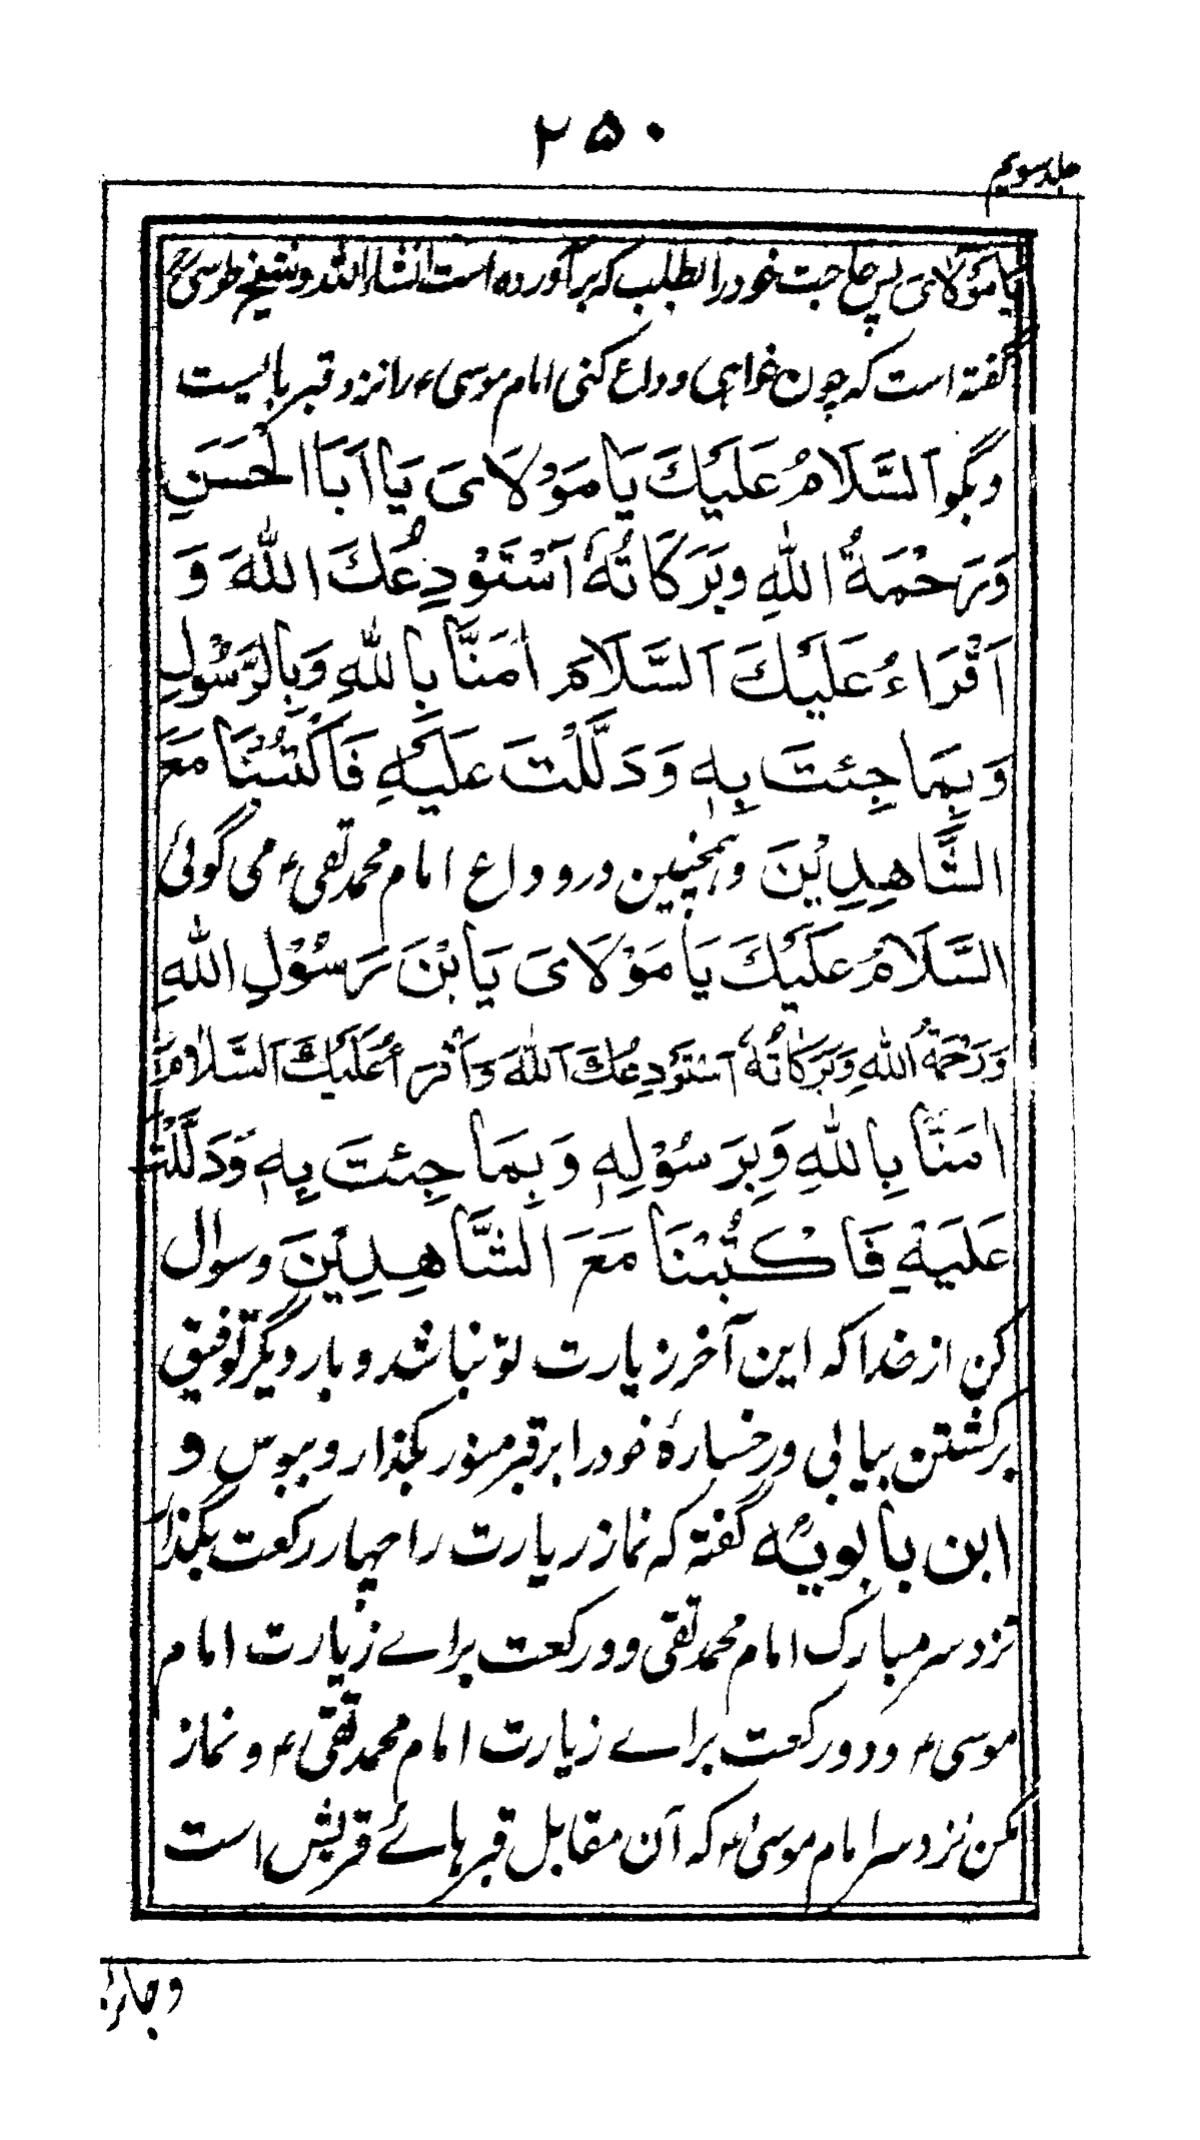 ۲۵۰
جلد سویم
یَا مَوْلَایَ پس حاجت خود را بطلب که برآورده است انشاء الله و شیخ طوسی رح
گفته است که چون خواهی وداع کنی امام موسی ء را نزد قبر بایست
وبگو اَلسَّلَامُ عَلَیْكَ یَا مَوْلَایَ یَا اَبَا الْحَسَنِ
وَرَحْمَةُ اللهِ وبَرَکَاتُهٗ اَسْتَوْدِعُكَ اللهَ وَ
اَقْرَاءُ عَلَیْكَ اَلسَّلَامَ اٰمَنَّا بِاللهِ وَبِالرَّسُوْلِ
وَبِمَا جِئتَ بِهٖ وَدَلَّلْتَ عَلَیْهِ فَاکْتُبْنَا مَعَ
الشَّاهِدِیْنَ وہمچنین در وداع امام محمد تقی ء می گوئی
السَّلَامُ عَلَیْكَ یَا مَوْلَایَ یَا بْنَ رَسُوْلِ اللهِ
وَرَحْمَةُ اللهِ وَبَرَکَاتُهٗ اَسْتَوْدِعُكَ اَللهَ وَاَقْرَءُ عَلَیْكَ اَلسَّلَامَ
اٰمَنَّا بِاللهِ وَبِرَسُوْلِهٖ وَبِمَا جِئتَ بِهٖ وَدَلَّلْتَ
عَلَیْهِ فَاکْتُبْنَا مَعَ الشَّاهِدِیْنَ وسوال
کن از خدا که این آخر زیارت تو نباشد و بار دیگر توفیق
برگشتن بیابی ورخسارۂ خود را بر قبر منور بگذار و ببوس و
ابن بابویه گفته که نماز زیارت را چهار رکعت بگذار
نزد سر مبارک امام محمد تقی دو رکعت براے زیارت امام
موسی ء ودو رکعت براے زیارت امام محمد تقی ء و نماز
مکن نزد سر امام موسیٰ ء که آن مقابل قبرهائے قریش است
وجائز